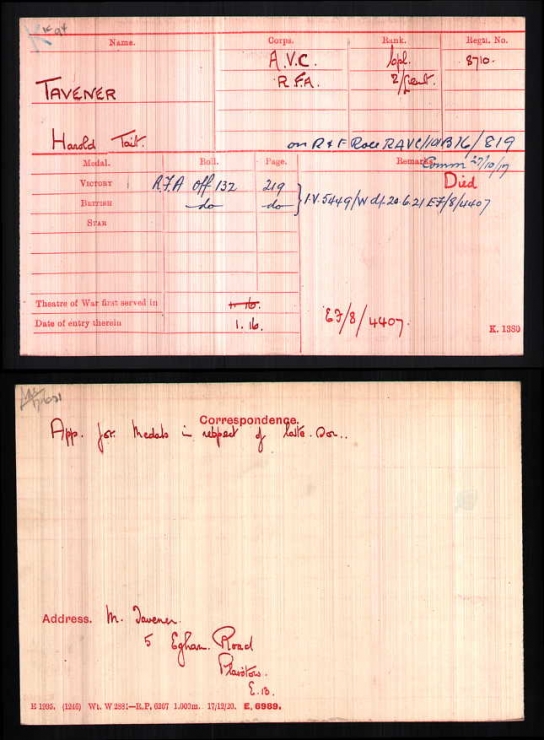 Name. Corps. Rank. Regtl. No.
A.V.C. Cpl. 8710.
TAVENER R.F.A. 2/Lieut.
Harold Tait. on R & F Roll RAVC/101B16/819
Medal. Roll. Page. Remarks.
Comm 27/10/17
VICTORY R.F.A Off 132 219 Died
BRITISH do do I.V. 5449/W d/. 20.6.21 EF/8/4407
STAR
Theatre of War first served in 1.16.
Date of entry therein 1.16. EF/8/4407. K. 1380
Correspondence.
App. for Medals in respect of late Son..
Address. M. Tavener.
5 Egham Road
Plaistow.
E.13.
(1246) Wt. W 2881—R.P. 6207 1,000m. 17/12/20. E. 6989.